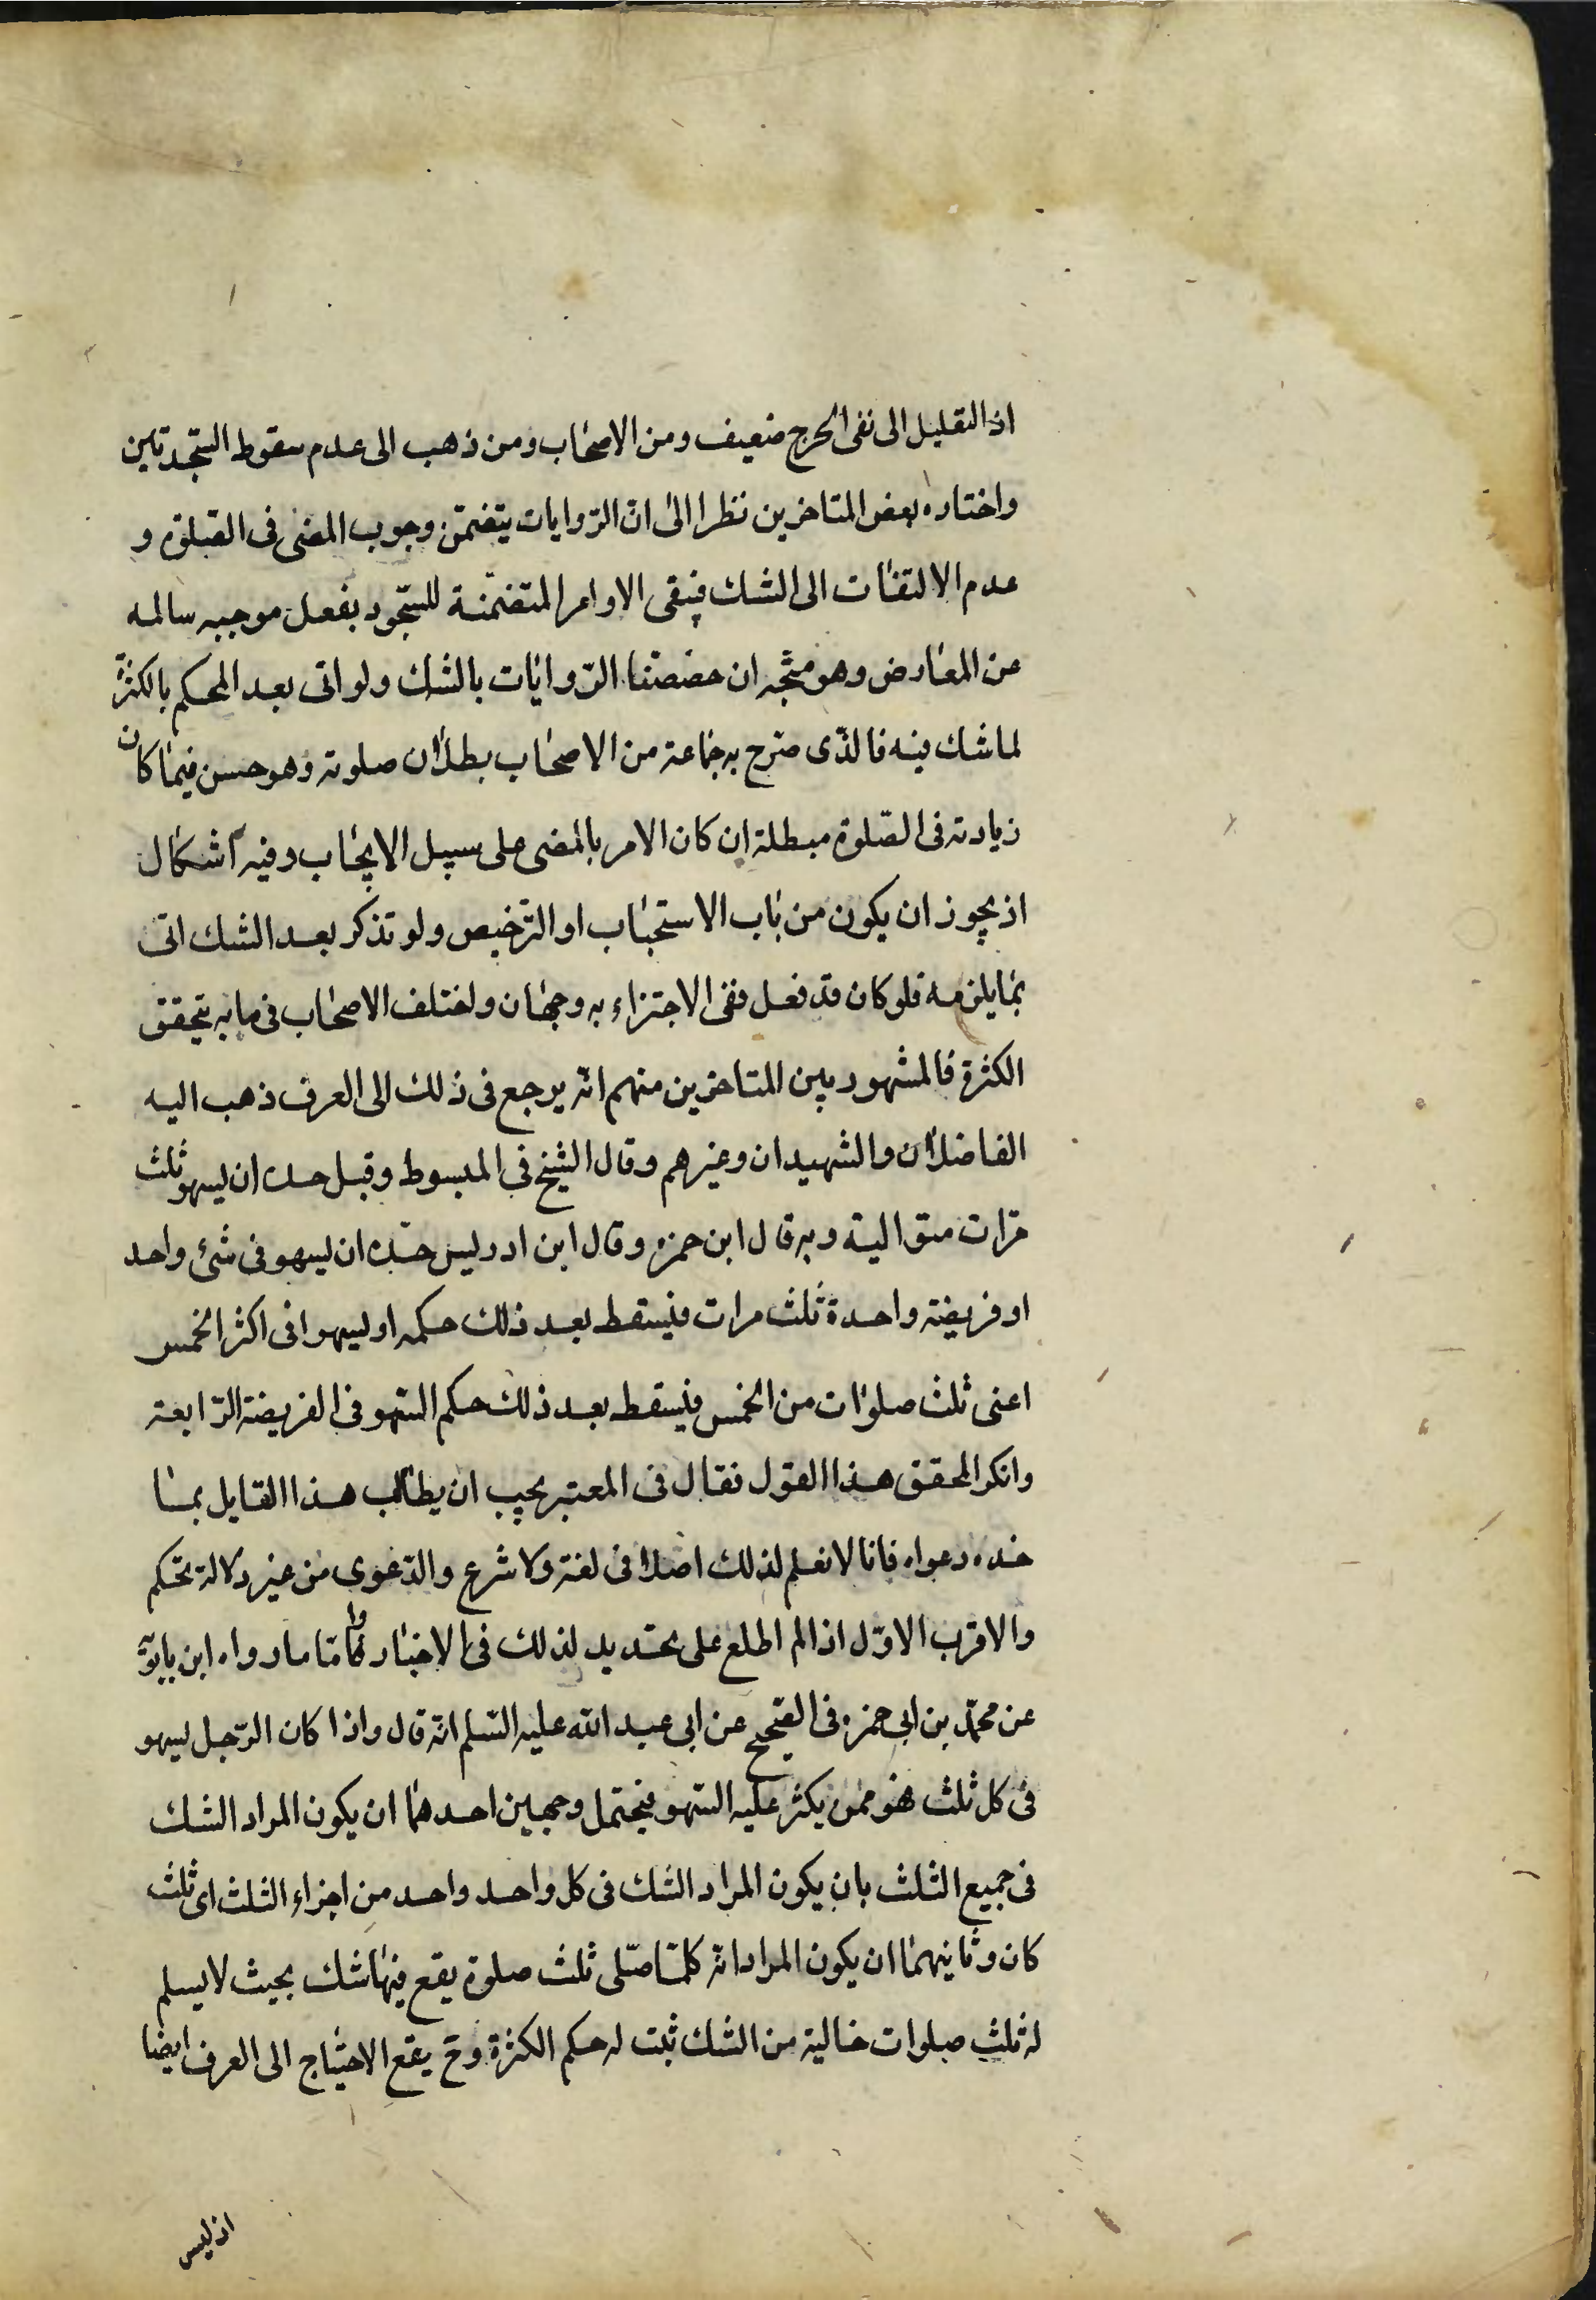 اذ التقليل الى نفى الحرج ضعيف ومن الاصحاب ومن ذهب الى عدم سقوط السّجدتين
واختاره بعض المتاخرين نظرا الى انّ الرّوايات يتضمّن وجوب المضى فى الصّلوة و
عدم الالتفات الى الشك فيبقى الاوامر المتضمّنة للسّجود بفعل موجبه سالمه
عن المعارض وهو متّجه ان خصصنا الرّوايات بالشك ولو اتى بعد الحكم بالكثرة
لما شك فيه فالّذى صرح به جماعة من الاصحاب بطلان صلوته وهو حسن فيما كان
زيادته فى الصّلوة مبطلة ان كان الامر بالمضى على سبيل الايجاب وفيه اشكال
اذ يجوز ان يكون من باب الاستحباب او الترّخيص ولو تذكر بعد الشك اتى
بما يلزمه فلو كان قد فعل ففى الاجتزاء به وجهان واختلف الاصحاب فى ما به يتحقق
الكثرة فالمشهور بين المتاخرين منهم انّه يرجع فى ذلك الى العرف ذهب اليه
الفاضلان والشهيدان وغيرهم وقال الشيخ فى المبسوط وقيل حده ان يسهو ثلث
مرّات متوالية وبه قال ابن حمزه وقال ابن ادريس حدّه ان يسهو فى شئ واحد
او فريضة واحدة ثلث مرات فيسقط بعد ذلك حكمه او يسهوا فى اكثر الخمس
اعنى ثلث صلوات من الخمس فيسقط بعد ذلك حكم السّهو فى الفريضة الرّابعة
وانكر المحقق هذا القول فقال فى المعتبر يجب ان يطالب هذا القايل بما
خذه دعواه فانا لا نعلم لذلك اصلا فى لغة ولا شرع والدّعوى من غير دلالة تحكم
والاقرب الاوّل اذا لم اطلع على تحديد لذلك فى الاخبار وامّا ما رواه ابن بابويه
عن محمّد بن ابى حمزه فى الصّحيح عن ابى عبد الله عليه السّلم انّه قال واذا كان الرّجل يسهو
فى كل ثلث فهو ممن يكثر عليه السّهو فيحتمل وجهين احدهما ان يكون المراد الشك
فى جميع الثلث بان يكون المراد الشك فى كل واحد واحد من اجزاء الثلث اى ثلث
كان وثانيهما ان يكون المراد انّه كلما صّلى ثلث صلوة يقع فيها شك بحيث لا يسلم
له ثلث صلوات خالية من الشك ثبت له حكم الكثرة وح يقع الاحتياج الى العرف ايضا
اذ ليس